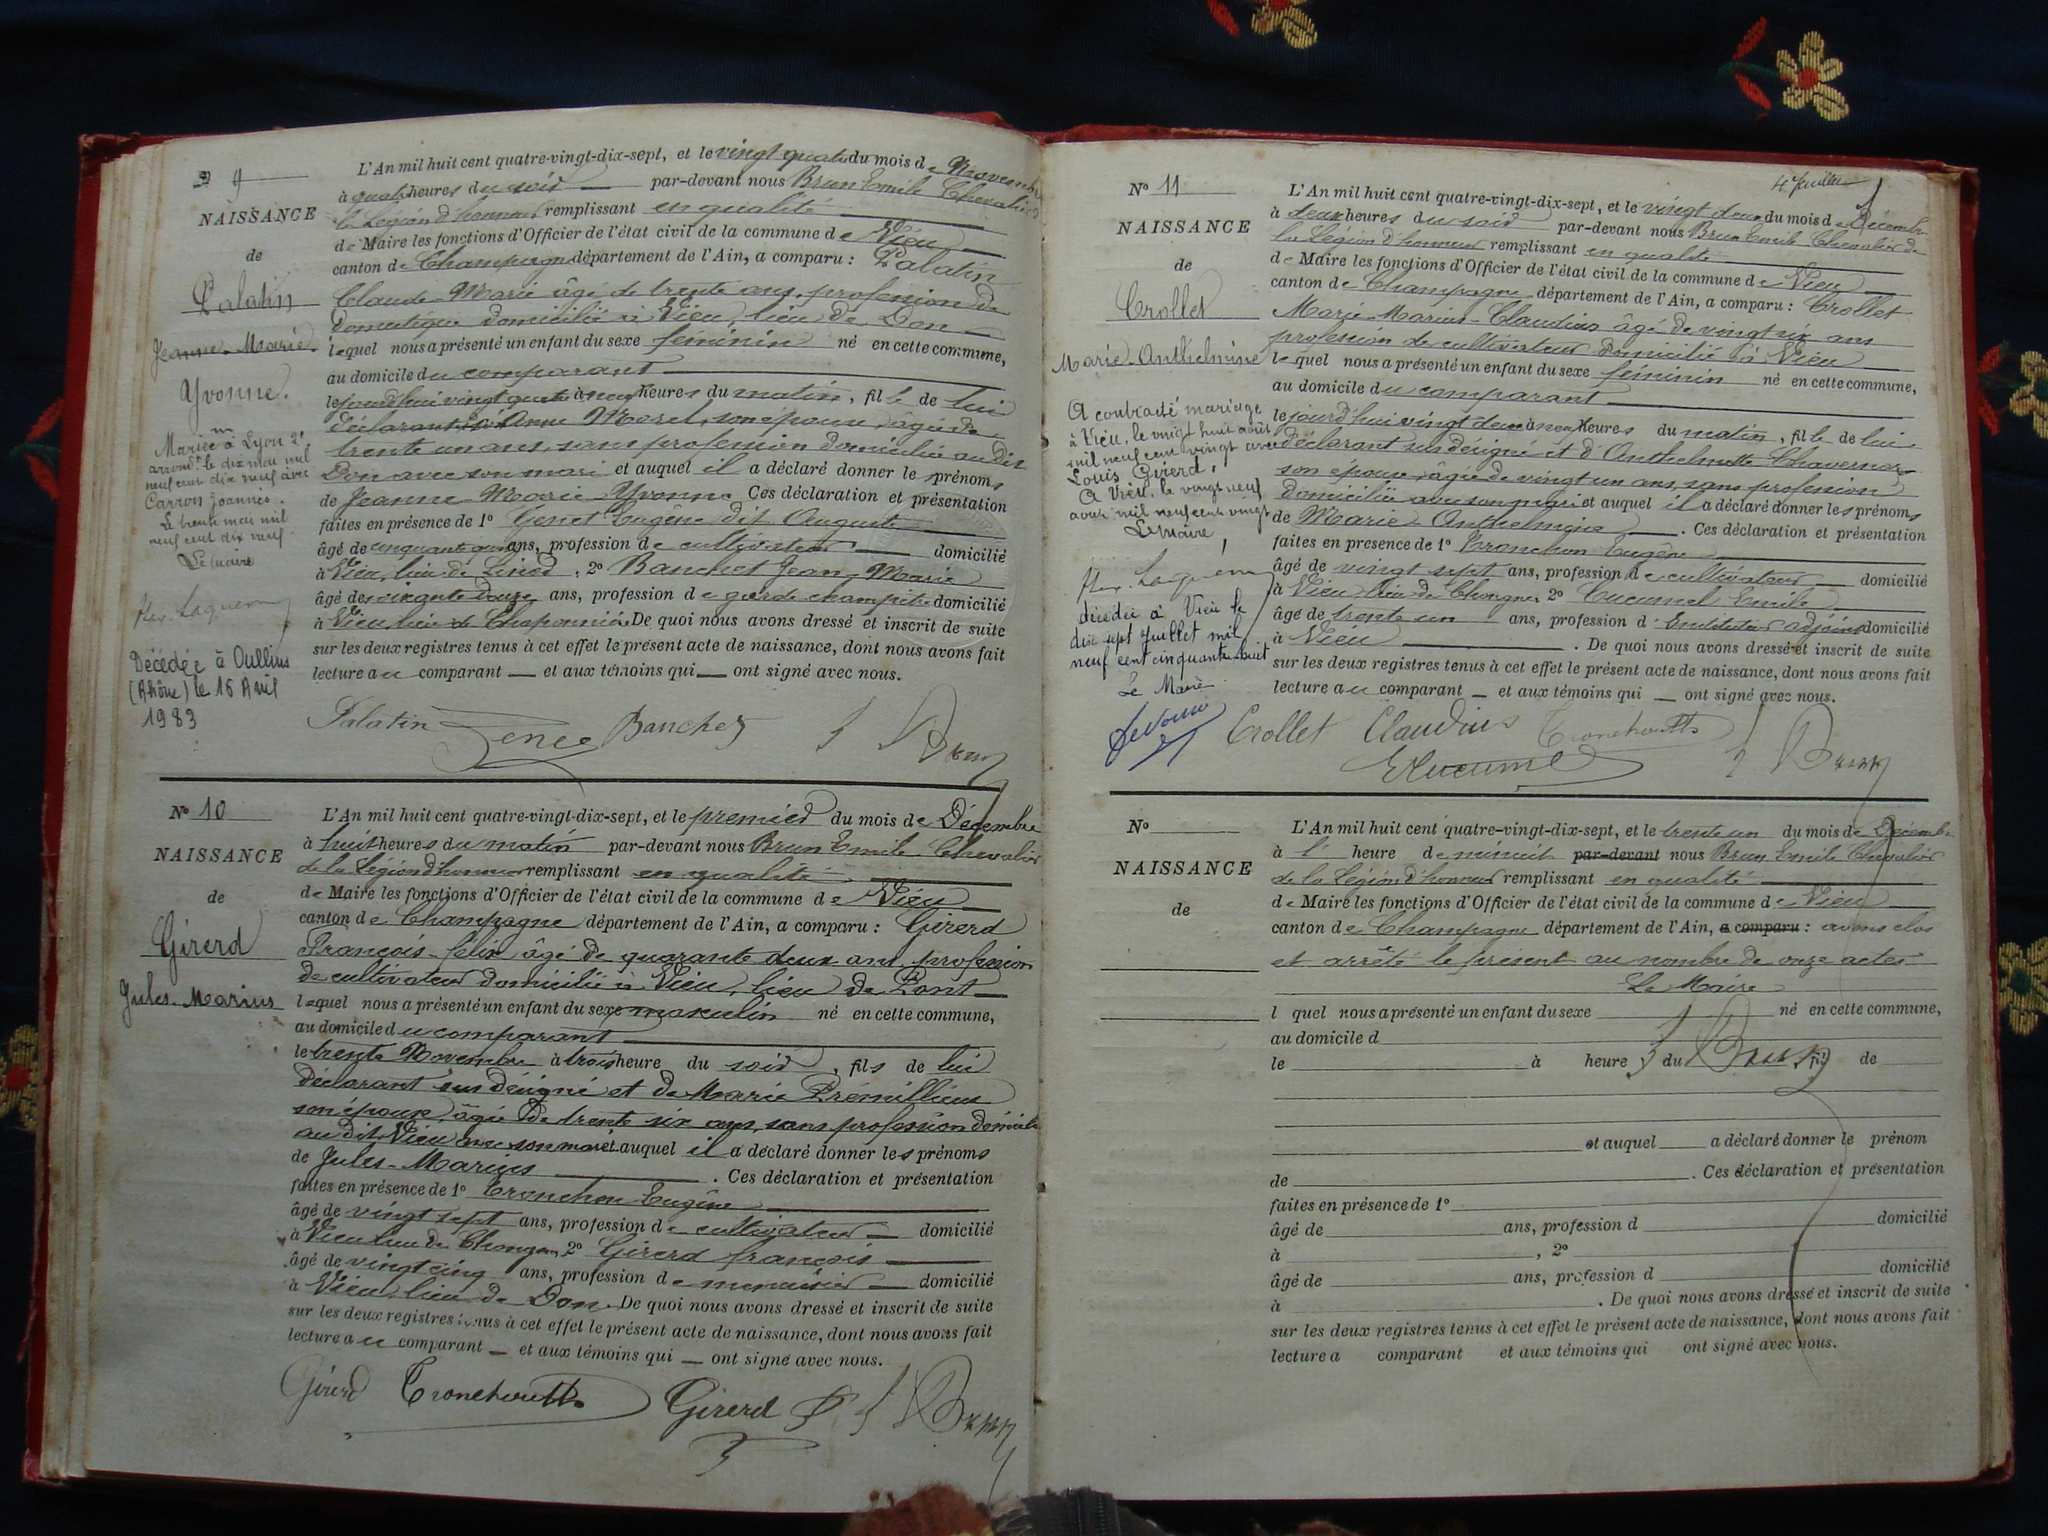 9
NAISSANCE
de
Palatin
Jeanne-Marie
Yvonne.
Mariée à Lyon 2e
arrond. le dix mai mil
neuf cent dix neuf avec
Carron Joannès.
Le trente mai mil
neuf cent dix neuf
Le maire
Décédée à Oullins
(Rhône) le 15 Avril
1983
L'An mil huit cent quatre-vingt-dix-sept, et le vingt quatre du mois de Novembre
à quatre heures du soir par-devant nous Brun Emile Chevalier
la Légion d'honneur remplissant en qualité
de Maire les fonctions d'Officier de l'état civil de la commune de Vieu
canton de Champagne département de l'Ain, a comparu : Palatin
Claude-Marie âgé de trente ans, profession de
domestique domicilié à Vieu, lieu de Don
lequel nous a présenté un enfant du sexe féminin né en cette commune,
au domicile du comparant
le jourd'hui vingt quatre à heures du matin, fille de lui
déclarant et d'Anne Morel, son épouse, âgée de
trente un ans, sans profession domiciliée au dit
Don avec son mari et auquel il a déclaré donner les prénoms
de Jeanne-Marie-Yvonne Ces déclaration et présentation
faites en présence de 1º Genet Eugène dit Auguste
âgé de cinquante ans, profession de cultivateur domicilié
à Vieu, lieu de , 2º Banchet Jean-Marie
âgé de soixante douze ans, profession de garde champêtre domicilié
à Vieu, lieu de Chaponnière De quoi nous avons dressé et inscrit de suite
sur les deux registres tenus à cet effet le présent acte de naissance, dont nous avons fait
lecture au comparant et aux témoins qui ont signé avec nous.
Palatin Genet Banchet Brun
Nº 10
NAISSANCE
de
Girerd
Jules-Marius
L'An mil huit cent quatre-vingt-dix-sept, et le premier du mois de Décembre
à huit heures du matin par-devant nous Brun Emile Chevalier
de la Légion d'honneur remplissant en qualité
de Maire les fonctions d'Officier de l'état civil de la commune de Vieu
canton de Champagne département de l'Ain, a comparu : Girerd
François-félix âgé de quarante deux ans, profession
de cultivateur domicilié à Vieu, lieu de Pont
lequel nous a présenté un enfant du sexe masculin né en cette commune,
au domicile du comparant
le trente Novembre à trois heure du soir, fils de lui
déclarant sus désigné et de Marie Prémillieu
son épouse, âgée de trente six ans, sans profession domiciliée
au dit Vieu avec son mari et auquel il a déclaré donner les prénoms
de Jules-Marius . Ces déclaration et présentation
faites en présence de 1º Tronchon Eugène
âgé de vingt sept ans, profession de cultivateur domicilié
à Vieu lieu de Chongnes 2º Girerd françois
âgé de vingt cinq ans, profession de menuisier domicilié
à Vieu, lieu de Don. De quoi nous avons dressé et inscrit de suite
sur les deux registres tenus à cet effet le présent acte de naissance, dont nous avons fait
lecture au comparant et aux témoins qui ont signé avec nous.
Girerd Girerd Brun
4e feuillet
Nº 11
NAISSANCE
de
Crollet
Marie-Anthelmine
A contracté mariage
à Vieu, le vingt huit août
mil neuf cent vingt avec
Louis Girerd,
A Vieu, le vingt neuf
août mil neuf cent vingt
Le maire,
décédée à Vieu le
dix sept juillet mil
neuf cent cinquante huit
Le Maire
L'An mil huit cent quatre-vingt-dix-sept, et le vingt deux du mois de Décembre
à deux heures du soir par-devant nous Brun Emile Chevalier de
la Légion d'honneur remplissant en qualité
de Maire les fonctions d'Officier de l'état civil de la commune de Vieu
canton de Champagne département de l'Ain, a comparu : Crollet
Marie-Marius-Claudius âgé de vingt six ans
profession de cultivateur domicilié à Vieu
lequel nous a présenté un enfant du sexe féminin né en cette commune,
au domicile du comparant
le jourd'hui vingt deux à heures du matin, fille de lui
déclarant sus désigné et d'Anthelmette
son épouse, âgée de vingt un ans, sans profession
domiciliée avec son mari et auquel il a déclaré donner les prénoms
de Marie-Anthelmine . Ces déclaration et présentation
faites en présence de 1º Tronchon Eugène
âgé de vingt sept ans, profession de cultivateur domicilié
à Vieu lieu de Chongnes 2º Cucumel Emile
âgé de trente un ans, profession d' Instituteur adjoint domicilié
à Vieu . De quoi nous avons dressé et inscrit de suite
sur les deux registres tenus à cet effet le présent acte de naissance, dont nous avons fait
lecture au comparant et aux témoins qui ont signé avec nous.
Crollet Claudius
ECucumel Brun
Nº
NAISSANCE
de
L'An mil huit cent quatre-vingt-dix-sept, et le trente un du mois de Décembre
à l' heure de minuit par-devant nous Brun Emile Chevalier
de la Légion d'honneur remplissant en qualité
de Maire les fonctions d'Officier de l'état civil de la commune de Vieu
canton de Champagne département de l'Ain, a comparu : avons clos
et arrêté le présent au nombre de onze actes
Le Maire
l quel nous a présenté un enfant du sexe né en cette commune,
au domicile d
le à heure du Brun fil de
et auquel a déclaré donner le prénom
de . Ces déclaration et présentation
faites en présence de 1º
âgé de ans, profession d domicilié
à , 2º
âgé de ans, profession d domicilié
à . De quoi nous avons dressé et inscrit de suite
sur les deux registres tenus à cet effet le présent acte de naissance, dont nous avons fait
lecture a comparant et aux témoins qui ont signé avec nous.